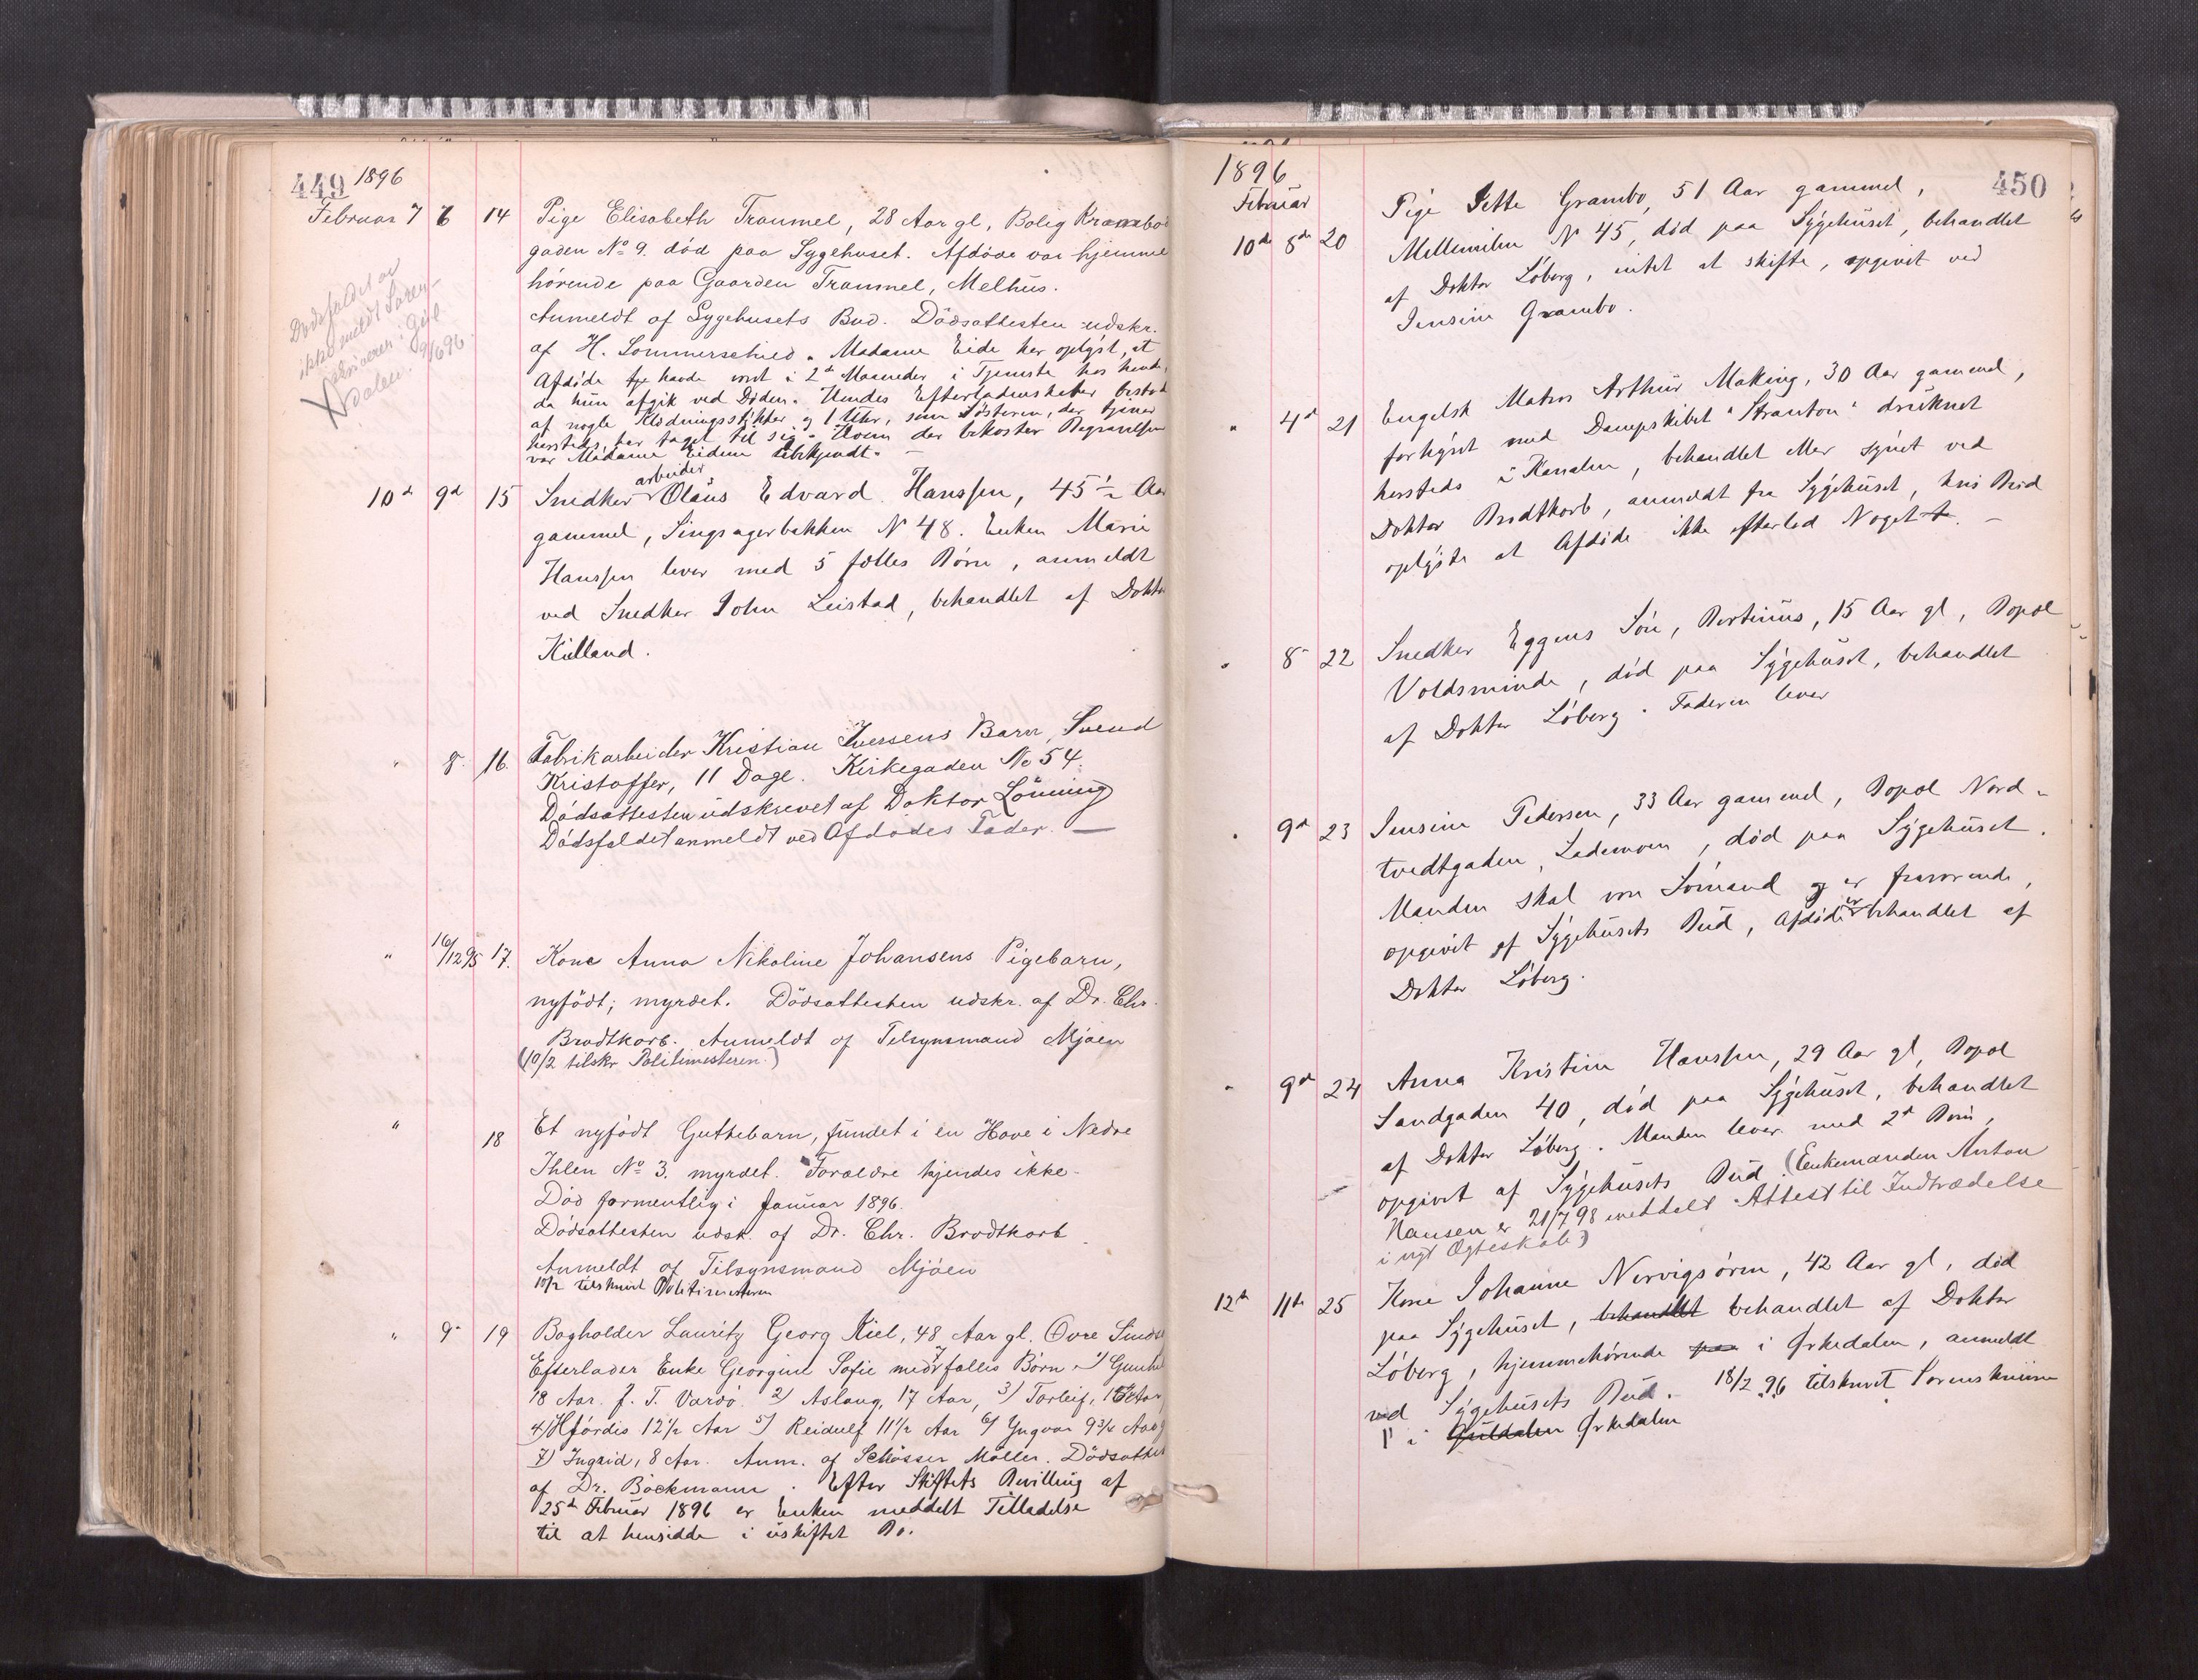 449 1896
Februar 7 6 14 Pige Elisabeth Trammel, 28 Aar gl, Bolig Krambod
gaden No 9. död paa Sygehuset. Afdöde var hjemme
hörende paa Gaarden Trammel, Melhus.
Anmeldt af Sygehusets Bud. Dödsattesten udskr.
af H. Sommerschied. Madame Eide har oplyst, at
Afdöde havde vært i 2de Maaneder i Tjeneste hos hende,
da hun afgik ved Döden. Hendes Efterladenskaber bestod
af nogle Klædningsstykker og 1 Uhr, som Sösteren, der tjener
hersteds, har taget til sig. Hvem der bekoster Begravelsen
var Madame Eidem ubekjendt. —
Dödsfaldet er
ikke meldt Soren-
skriveren i Gul
dalen. 9/6 96
10de 9de 15 Snedkerarbeider Olaus Edvard Hanssen, 45 1/2 Aar
gammel, Singsagerbakken No 48. Enken Marie
Hanssen lever med 5 fælles Börn, anmeldt
ved Snedker John Leistad, behandlet af Doktor
Kielland.
" 8. 16. Fabrikarbeider Kristian Iversens Barn, Svend
Kristoffer, 11 Dage. Kirkegaden No 54.
Dödsattesten udskrevet af Doktor Lönning
Dödsfaldet anmeldt ved Afdödes Fader. —
" 16/12 95 17. Kone Anna Nikoline Johansens Pigebarn,
nyfödt; myrdet. Dödsattesten udskr. af Dr. Chr.
Brodtkorb. Anmeldt af Tilsynsmand Mjöen
(10/2 tilskr Politimesteren.)
" 18 Et nyfödt Guttebarn, fundet i en Have i Nedre
Ihlen No 3. myrdet. Forældre kjendes ikke.
Död formentlig i Januar 1896.
Dödsattesten udsk. af Dr. Chr. Brodtkorb
Anmeldt af Tilsynsmand Mjöen
10/2 tilskrevet Politimesteren
" 9de 19 Bogholder Lauritz Georg Kiel, 48 Aar gl. Övre
Efterlader Enke Georgine Sofie med 7 fælles Börn 1)
18 Aar. f. T. Vardö. 2) Aslaug, 17 Aar, 3) Torleif, Aar
4) Hjördis 12 1/2 Aar 5) Reidulf 11 1/2 Aar 6) Yngvar 9 3/4 Aar
7) Ingrid, 8 Aar. Anm. af Möller. Dödsattest
af Dr. Böckmann. Efter Skiftets Bevilling af
25de Februar 1896 er Enken meddelt Tilladelse
til at hensidde i uskiftet Bo.
1896 450
Februar
10de 8de 20 Pige Jette Grambo, 51 Aar gammel,
Mellemilen No 45, död paa Sygehuset, behandlet
af Doktor Löberg, intet at skifte, opgivet ved
Jensine Grambo.
" 4de 21 Engelsk Matros Arthur Making, 30 Aar gammel,
forhyret med Dampskibet "Stranton" druknet
hersteds i Kanalen, behandlet eller synet ved
Doktor Brodtkorb, anmeldt fra Sygehuset, hvis Bud
oplyste at Afdöde ikke efterlod Noget. —
" 8de 22 Snedker Eggens Sön, Bertinius, 15 Aar gl, Bopæl
Voldsminde, död paa Sygehuset, behandlet
af Doktor Löberg. Faderen lever
" 9de 23 Jensine Pedersen, 33 Aar gammel, Bopæl Nord-
tvedtgaden, Lademoen, död paa Sygehuset.
Manden skal være Sömand og er fraværende,
opgivet af Sygehusets Bud, Afdöde er behandlet af
Doktor Löberg.
" 9de 24 Anna Kristine Hanssen, 29 Aar gl, Bopæl
Sandgaden 40, död paa Sygehuset, behandlet
af Doktor Löberg. Manden lever med 2de Börn,
opgivet af Sygehusets Bud. (Enkemanden Anton
Hansen er 21/7 98 meddelt Attest til Indtrædelse
i nyt Ægteskab)
12te 11te 25 Kone Johanne Nervigsören, 42 Aar gl, död
paa Sygehuset, behandlet behandlet af Doktor
Löberg, hjemmehörende paa i Örkedalen, anmeldt
ved Sygehusets Bud. 18/2 96 tilskrevet Sorenskriveren
i Guldalen Örkedalen